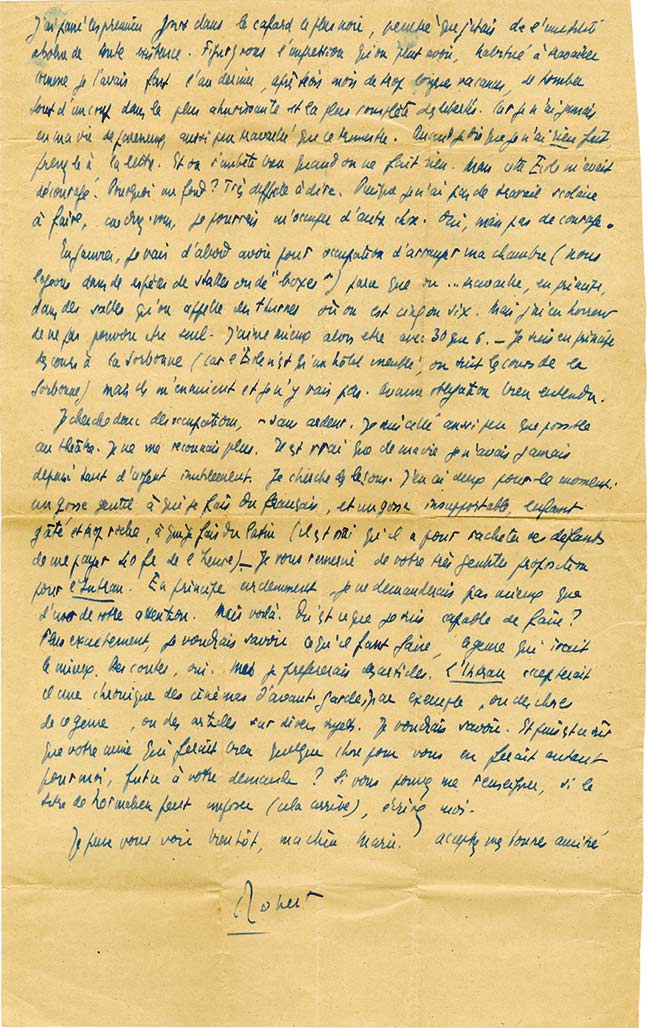 J'ai passé les premiers jours dans le cafard le plus noir, pénétré que j'étais de l'inutilité
absolue de toute existence. Figurez-vous l'impression qu'on peut avoir, habitué à travailler
comme je l'avais fait l'an dernier, après trois mois de trop longues vacances, de tomber
tout d'un coup dans la plus ahurissante et la plus complète des libertés. Car je n'ai jamais
en ma vie de aussi peu travaillé que ce trimestre. Quand je dis que je n'ai rien fait,
prenez-le à la lettre. Et on s'embête bien quand on ne fait rien. Mais cette École m'avait
découragé. Pourquoi au fond ? Très difficile à dire. Puisque je n'ai pas de travail scolaire
à faire, -vous, je pourrais m'occuper d'autre chose. Oui, mais pas de courage.
En janvier, je vais d'abord avoir pour occupation d'arranger ma chambre (nous
logeons dans des espèces de stalles ou de "boxes") parce que on ... travaille, en principe,
dans des salles qu'on appelle des thurnes où on est cinq ou six. Mais j'ai en horreur
de ne pas pouvoir être seul. J'aime mieux alors être avec 30 que 6. – Je suis en principe
des cours à la Sorbonne (car l'École n'est qu'un hôtel meublé, on suit les cours de la
Sorbonne) mais ils m'ennuient et je n'y vais pas. Aucune obligation bien entendu.
Je cherche donc des occupations, – sans ardeur. Je aussi peu que possible
au théâtre. Je ne me reconnais plus. Il est vrai que de ma vie je n'avais jamais
dépensé tant d'argent inutilement. Je cherche des leçons. J'en ai deux pour le moment :
un gosse gentil à qui je fais du français, et un gosse insupportable, enfant
gâté et trop riche, à qui je fais du latin (il est vrai qu'il a pour racheter ses défauts
de me payer 40 fr de l'heure) – Je vous remercie de votre très gentille proposition
pour l'Intran. En principe évidemment je ne demanderais pas mieux que
d'user de votre attention. Mais voilà. Qu'est-ce que je suis capable de faire ?
Plus exactement, je voudrais savoir ce qu'il faut faire, le genre qui irait
le mieux. Des contes, oui. Mais je préférerais des articles. L'Intran accepterait
-il une chronique des cinémas d'avant-garde, par exemple, ou des choses
de ce genre, ou des articles sur divers sujets. Je voudrais savoir. Et puis est-ce sûr
que votre amie qui ferait bien quelque chose pour vous en ferait autant
pour moi, fut-ce à votre demande ? Si vous pouvez me renseigner, si le
titre de normalien peut imposer (cela arrive), écrivez moi.
Je pense vous voir bientôt, ma chère Marie. Acceptez mes bonnes amitiés
Robert